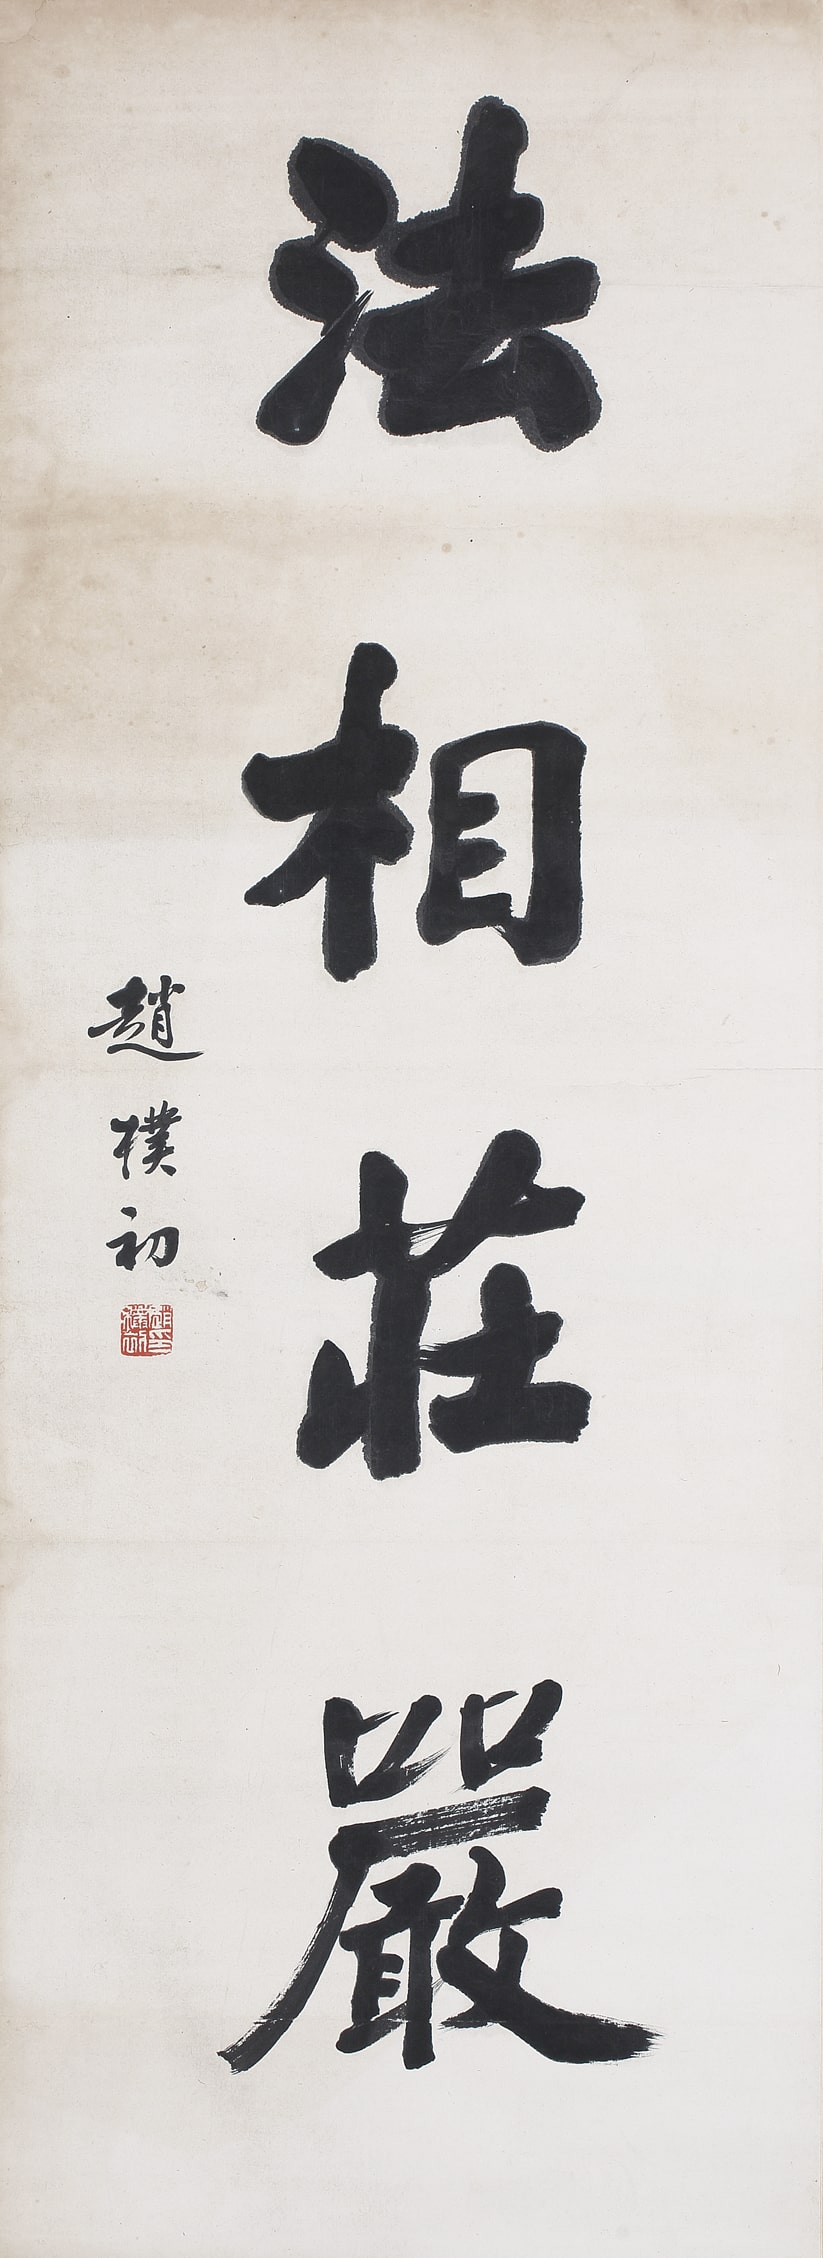 法相莊嚴
趙樸初
趙樸初印